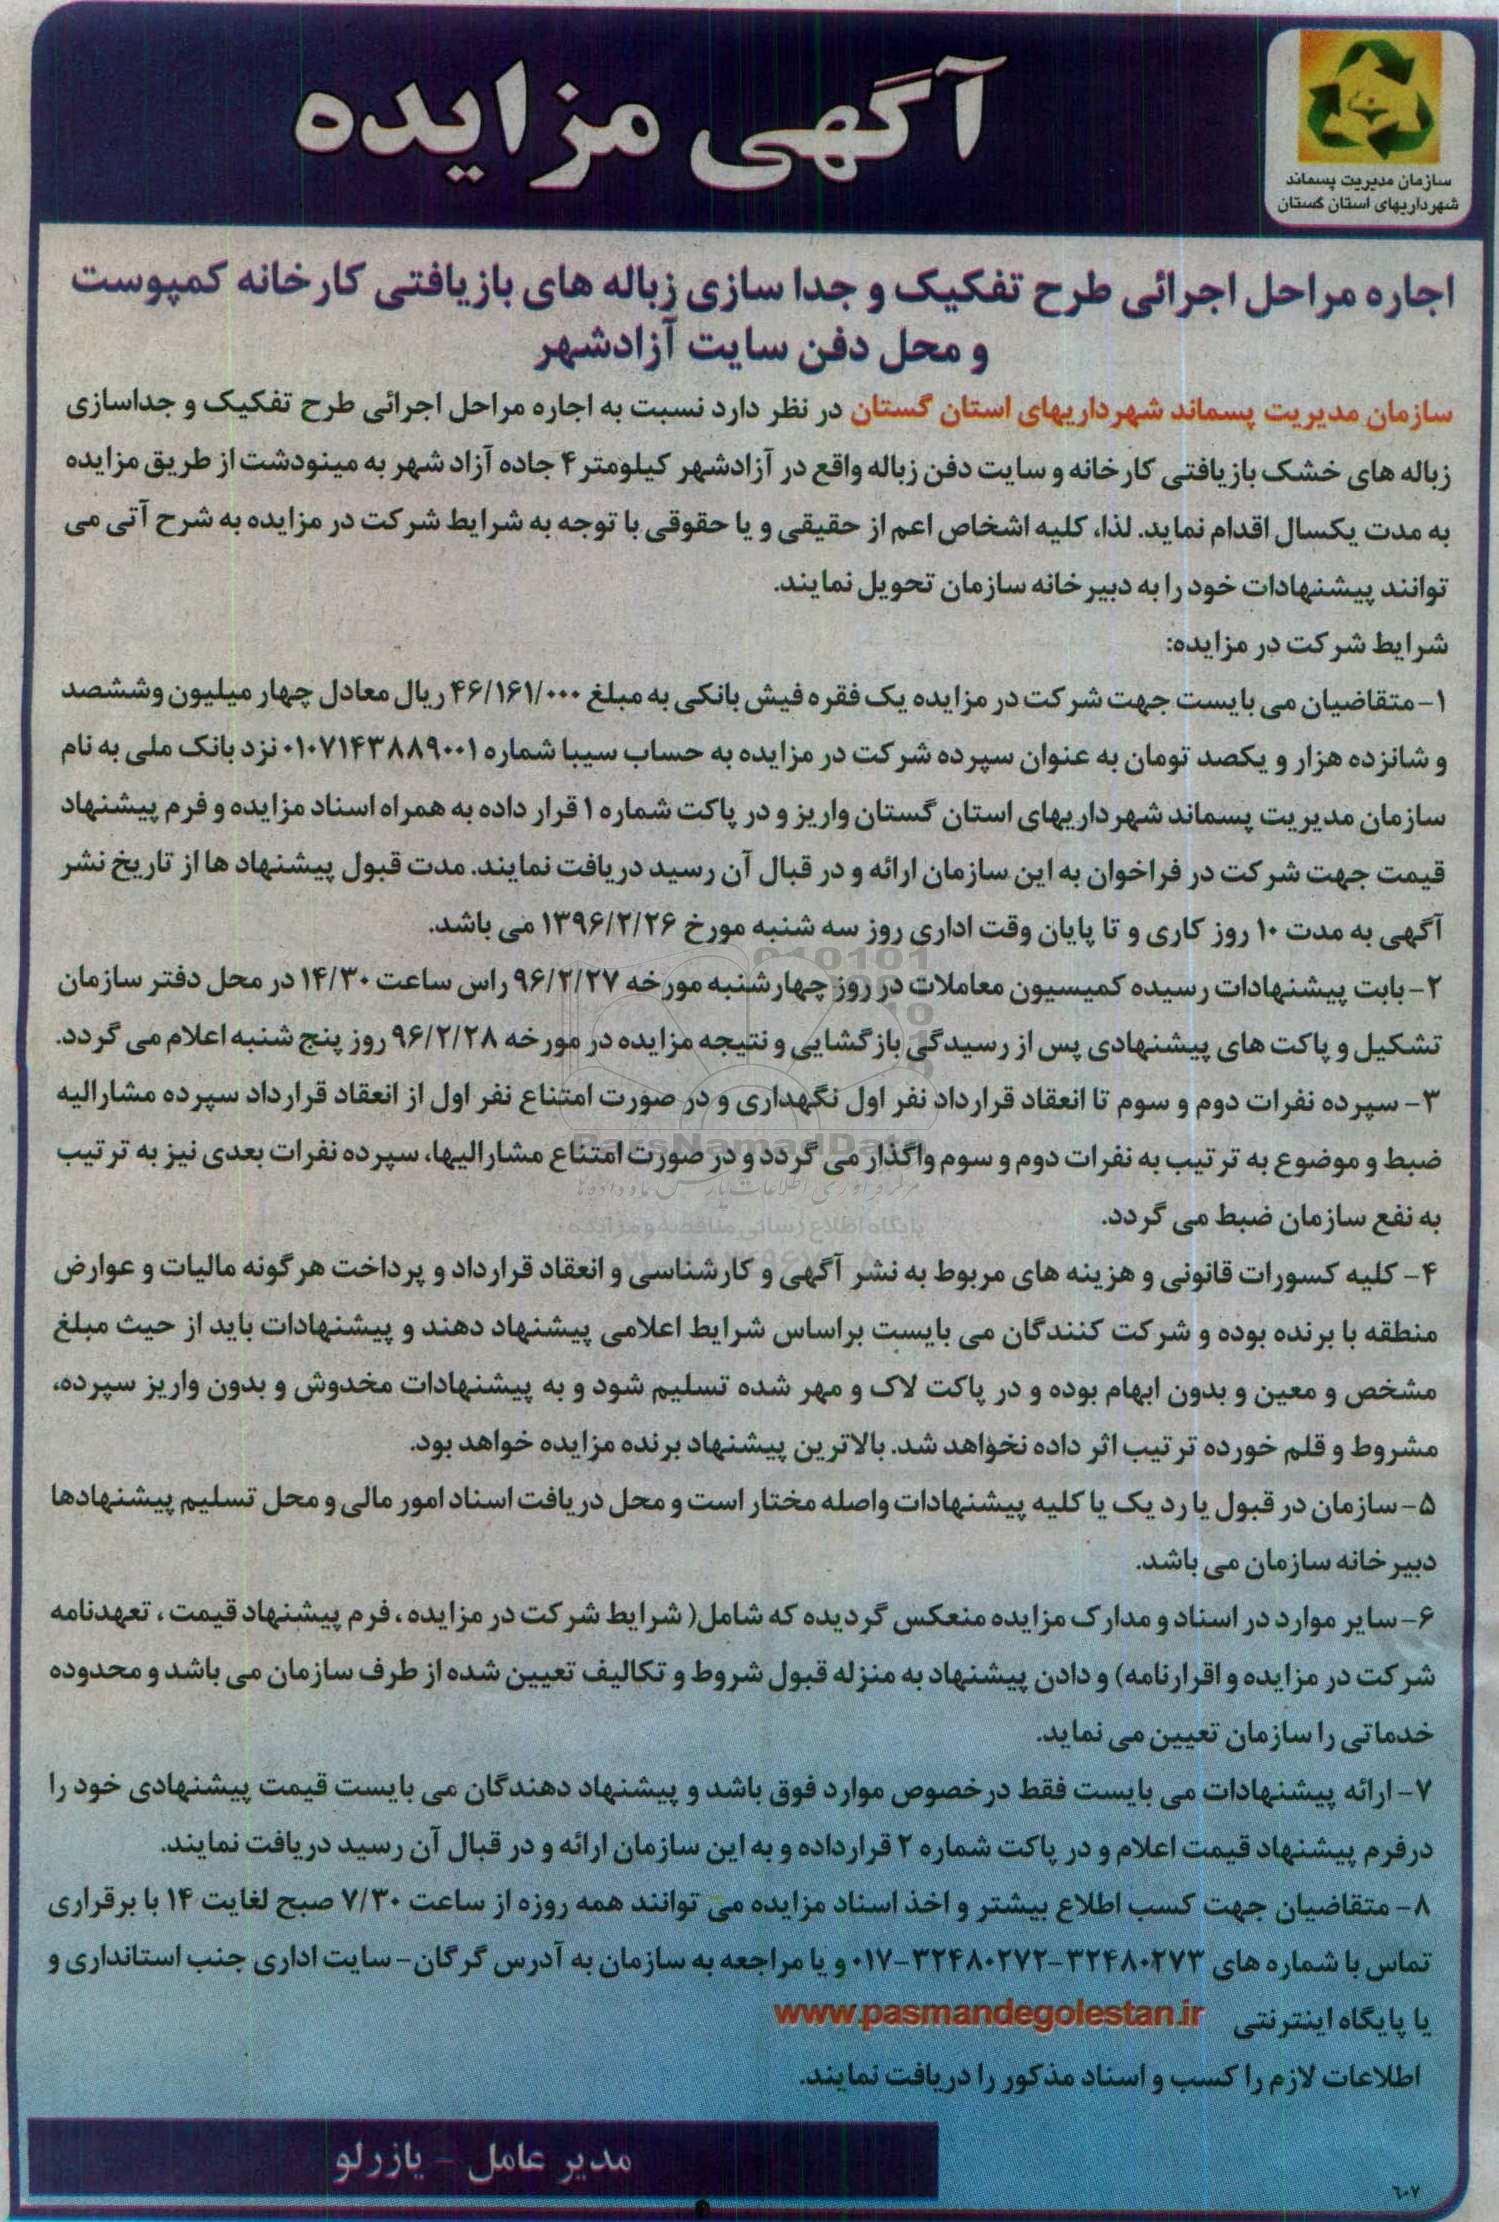 آگهی مزایده
سازمان مدیریت پسماند
شهرداریهای استان گلستان
اجاره مراحل اجرائی طرح تفکیک و جدا سازی زباله های بازیافتی کارخانه کمپوست
و محل دفن سایت آزادشهر
سازمان مدیریت پسماند شهرداریهای استان گلستان در نظر دارد نسبت به اجاره مراحل اجرائی طرح تفکیک و جداسازی
زباله های خشک بازیافتی کارخانه و سایت دفن زباله واقع در آزادشهر کیلومتر ۴ جاده آزاد شهر به مینودشت از طریق مزایده
به مدت یکسال اقدام نماید. لذا، کلیه اشخاص اعم از حقیقی و یا حقوقی با توجه به شرایط شرکت در مزایده به شرح آتی می
توانند پیشنهادات خود را به دبیرخانه سازمان تحویل نمایند.
شرایط شرکت در مزایده:
۱- متقاضیان می بایست جهت شرکت در مزایده یک فقره فیش بانکی به مبلغ ۴۶/۱۶۱/۰۰۰ ریال معادل چهار میلیون وششصد
و شانزده هزار و یکصد تومان به عنوان سپرده شرکت در مزایده به حساب سیبا شماره ۰۱۰۷۱۴۳۸۸۹۰۰۱ نزد بانک ملی به نام
سازمان مدیریت پسماند شهرداریهای استان گلستان واریز و در پاکت شماره ۱ قرار داده به همراه اسناد مزایده و فرم پیشنهاد
قیمت جهت شرکت در فراخوان به این سازمان ارائه و در قبال آن رسید دریافت نمایند. مدت قبول پیشنهاد ها از تاریخ نشر
آگهی به مدت ۱۰ روز کاری و تا پایان وقت اداری روز سه شنبه مورخ ۱۳۹۶/۲/۲۶ می باشد.
۲- بابت پیشنهادات رسیده کمیسیون معاملات در روز چهارشنبه مورخه ۹۶/۲/۲۷ راس ساعت ۱۴/۳۰ در محل دفتر سازمان
تشکیل و پاکت های پیشنهادی پس از رسیدگی بازگشایی و نتیجه مزایده در مورخه ۹۶/۲/۲۸ روز پنج شنبه اعلام می گردد.
۳- سپرده نفرات دوم و سوم تا انعقاد قرارداد نفر اول نگهداری و در صورت امتناع نفر اول از انعقاد قرارداد سپرده مشارالیه
ضبط و موضوع به ترتیب به نفرات دوم و سوم واگذار می گردد و در صورت امتناع مشارالیها، سپرده نفرات بعدی نیز به ترتیب
به نفع سازمان ضبط می گردد.
۴- کلیه کسورات قانونی و هزینه های مربوط به نشر آگهی و کارشناسی و انعقاد قرارداد و پرداخت هرگونه مالیات و عوارض
منطقه با برنده بوده و شرکت کنندگان می بایست براساس شرایط اعلامی پیشنهاد دهند و پیشنهادات باید از حیث مبلغ
مشخص و معین و بدون ابهام بوده و در پاکت لاک و مهر شده تسلیم شود و به پیشنهادات مخدوش و بدون واریز سپرده،
مشروط و قلم خورده ترتیب اثر داده نخواهد شد. بالاترین پیشنهاد برنده مزایده خواهد بود.
۵- سازمان در قبول یا رد یک یا کلیه پیشنهادات واصله مختار است و محل دریافت اسناد امور مالی و محل تسلیم پیشنهادها
دبیرخانه سازمان می باشد.
۶- سایر موارد در اسناد و مدارک مزایده منعکس گردیده که شامل( شرایط شرکت در مزایده ، فرم پیشنهاد قیمت ، تعهدنامه
شرکت در مزایده و اقرارنامه) و دادن پیشنهاد به منزله قبول شروط و تکالیف تعیین شده از طرف سازمان می باشد و محدوده
خدماتی را سازمان تعیین می نماید.
۷- ارائه پیشنهادات می بایست فقط درخصوص موارد فوق باشد و پیشنهاد دهندگان می بایست قیمت پیشنهادی خود را
درفرم پیشنهاد قیمت اعلام و در پاکت شماره ۲ قرارداده و به این سازمان ارائه و در قبال آن رسید دریافت نمایند.
۸- متقاضیان جهت کسب اطلاع بیشتر و اخذ اسناد مزایده می توانند همه روزه از ساعت ۷/۳۰ صبح لغایت ۱۴ با برقراری
تماس با شماره های ۳۲۴۸۰۲۷۳-۳۲۴۸۰۲۷۲-۰۱۷ و یا مراجعه به سازمان به آدرس گرگان- سایت اداری جنب استانداری و
یا پایگاه اینترنتی www.pasmandegolestan.ir
اطلاعات لازم را کسب و اسناد مذکور را دریافت نمایند.
مدیر عامل - یازرلو
۶۰۷
ParsNamadData
پایگاه اطلاع رسانی مناقصه و مزایده